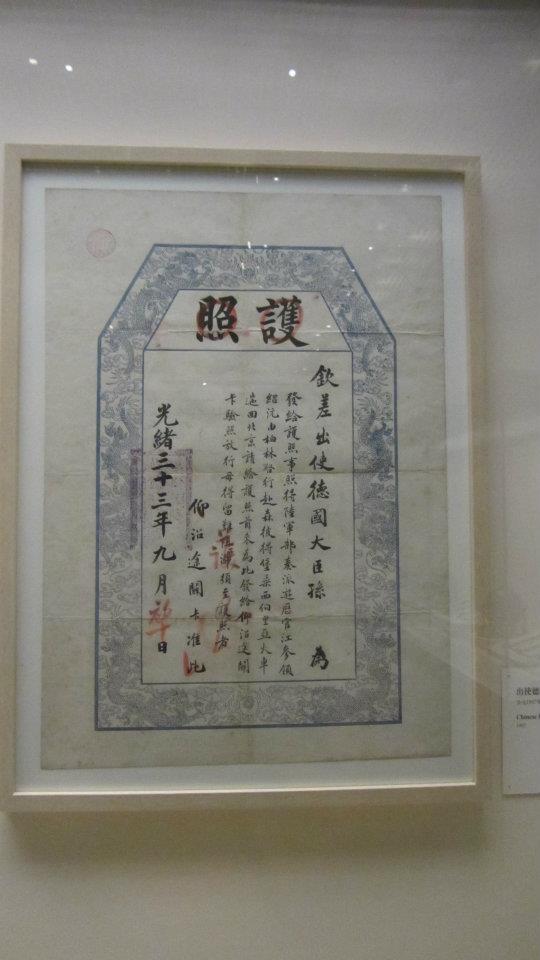 護照
欽差出使德國大臣孫 為
發給護照事照得陸軍部奏派遊歷官江參領
紹沅由柏林啓行赴森彼得堡乘西伯里亞火車
遄回北京請給護照前來為此發給仰沿途關
卡驗照放行毋得留難阻滯須至護照者
仰沿途關卡准此
光緒三十三年九月 日
出使德
Chinese
1907